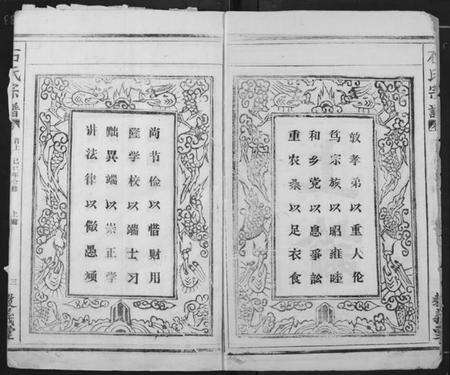 石氏宗譜
敦孝弟以重人伦
笃宗族以昭雍睦
和乡党以息爭訟
重农桑以足衣食
尚节俭以惜财用
隆学校以端士习
黜異端以崇正学
讲法律以儆愚顽
石氏宗譜
三